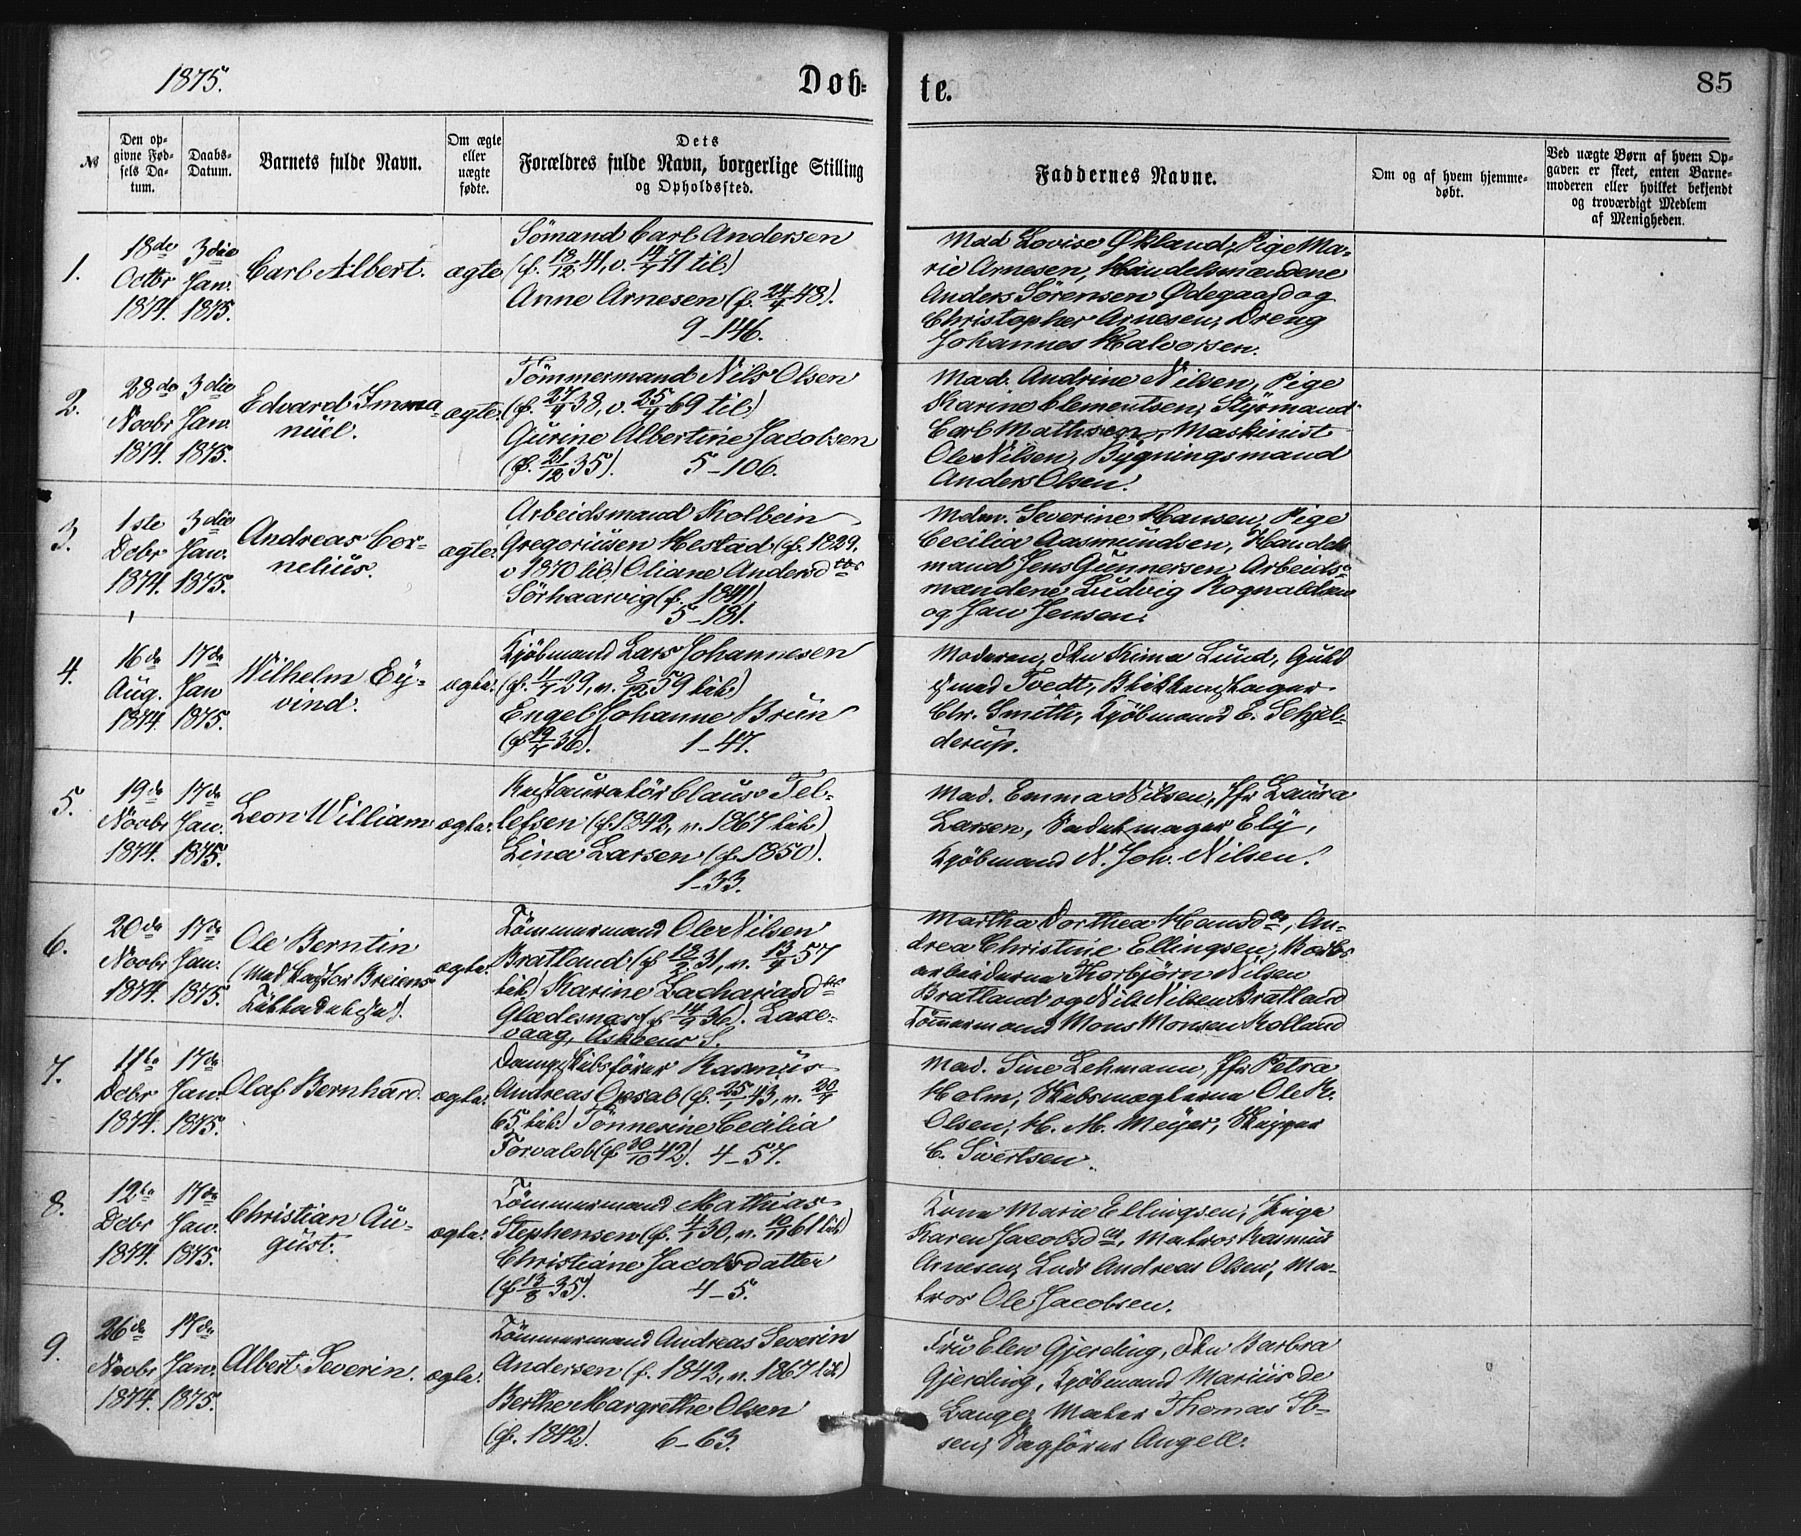 1875.
Døb=
te.
85
№
Den op-
givne Fød-
sels Da-
tum.
Daabs-
Datum.
Barnets fulde Navn.
Om ægte
eller
uægte
fødte.
Dets
Forældres fulde Navn, borgerlige Stilling
og Opholdssted.
Faddernes Navne.
Om og af hvem hjemme-
døbt.
Ved uægte Børn af hvem Op-
gaven er skeet, enten Barne-
moderen eller hvilket bekjendt
og troværdigt Medlem
af Menigheden.
1.
18de
Octbr
1874.
3die
Jan.
1875.
Carl Albert.
ægte
Sømand Carl Andersen
(f. 18/12 41, v. 14/4 71 til)
Anne Arnesen (f. 24/4 48).
9-146.
Mad Lovise Økland, Pige Ma-
rie Arnesen, Handelsmændene
Anders Sørensen Ødegaard og
Christopher Arnesen, Dreng
Johannes Halvorsen.
2.
28de
Novbr
1874.
3die
Jan.
1875.
Edvard Imma-
nüel.
ægte.
Tømmermand Nils Olsen
(f. 27/4 38, v. 25/4 69 til)
Gürine Albertine Jacobsen
(f. 31/12 35). 5-106.
Mad. Andrine Nilsen, Pige
Karine Clementsen, Styrmand
Carl Mathsen, Maskinist
Ole Nilsen, Bygningsmand
Anders Olsen.
3.
1ste
Debr
1874.
3die
Jan.
1875.
Andreas Cor-
nelius.
ægte.
Arbeidsmand Kolbein
Gregoriusen Hestad (f. 1829,
v 1870 til) Oliane Andersdtr
Sørhaarvig (f. 1841)
5-181.
Mdm. Severine Hansen, Pige
Cecilia Aasmundsen, Handels
mand Jens Gunnersen Arbeids-
mændene Ludvig Rognaldsen
og Jan Jensen.
4.
16de
Aug.
1874.
17de
Jan
1875.
Wilhelm Ey-
vind.
ægte.
Kjøbmand Lars Johannesen
(f. 11/7 29, v. 2/12 59 til)
Engel Johanne Brün
(f 19/5 36). 1-47.
Moderen, Frk Kima Lund, Guld
smed Tvedt, Blikkenslager
Chr. Smith, Kjøbmand E. Schjel-
derup.
5.
19de
Novbr
1874.
17de
Jan.
1875.
Leon William
ægte.
Restauratør Claus Tel-
lefsen (f. 1842, v. 1867 til)
Lina Larsen (f. 1850).
1-33.
Mad. Emma Nilsen, Jfr Laura
Larsen, Sadelmager Ely,
Kjøbmand N. Joh. Nilsen.
6.
20de
Novbr
1874.
17de
Jan.
1875.
Ole Berntin
ægte.
Tømmermand Ole Nilsen
Bratland (f 18/2 31, v. 13/4 57
til) Karine Zachariasdtr
Glædesnæs (f 14/9 36). Laxe-
vaag, Askøens S.
Martha Dorthea Hansdtr, An-
drea Christine Ellingsen, Værks
arbeiderne Thorbjørn Nilsen
Bratland og Nils Nilsen Bratland
Tømmermand Mons Monsen Kolland
7.
11te
Debr
1874.
17de
Jan.
1875.
Olaf Bernhard.
ægte.
Dampskibsfører Rasmus
Andreas Opsal (f. 25/1 43, v. 20/4
65 til) Tönnerine Cecilia
Torvalob (f 30/10 42). 4-57.
Mad. Sine Lehmann, Jfr Petra
Holm, Skibsmæglerne Ole R.
Olsen, H. M. Meyer, Skipper
C. Sivertsen.
8.
12te
Debr
1874.
17de
Jan.
1875.
Christian Au-
gust.
ægte.
Tømmermand Mathias
Stephensen (f. 4/1 30, v. 10/11 61 til)
Christiane Jacobsdatter
(f 13/8 35). 4-5.
Kone Marie Ellingsen, Pige
Karen Jacobsdtr, Matros Rasmus
Arnesen, Lods Andreas Olsen, Ma-
tros Ole Jacobsen.
9.
26de
Novbr
1874.
17de
Jan.
1875.
Albert Severin.
ægte.
Tømmermand Andreas Severin
Andersen (f. 1842, v. 1867 til)
Berthe Margrethe Olsen
(f. 1842). 6-63.
Fru Elen Gjerding, Frk Barbra
Gjerding, Kjøbmand Marius de
Lange, Maler Thomas Ib-
sen, Sagfører Angell.